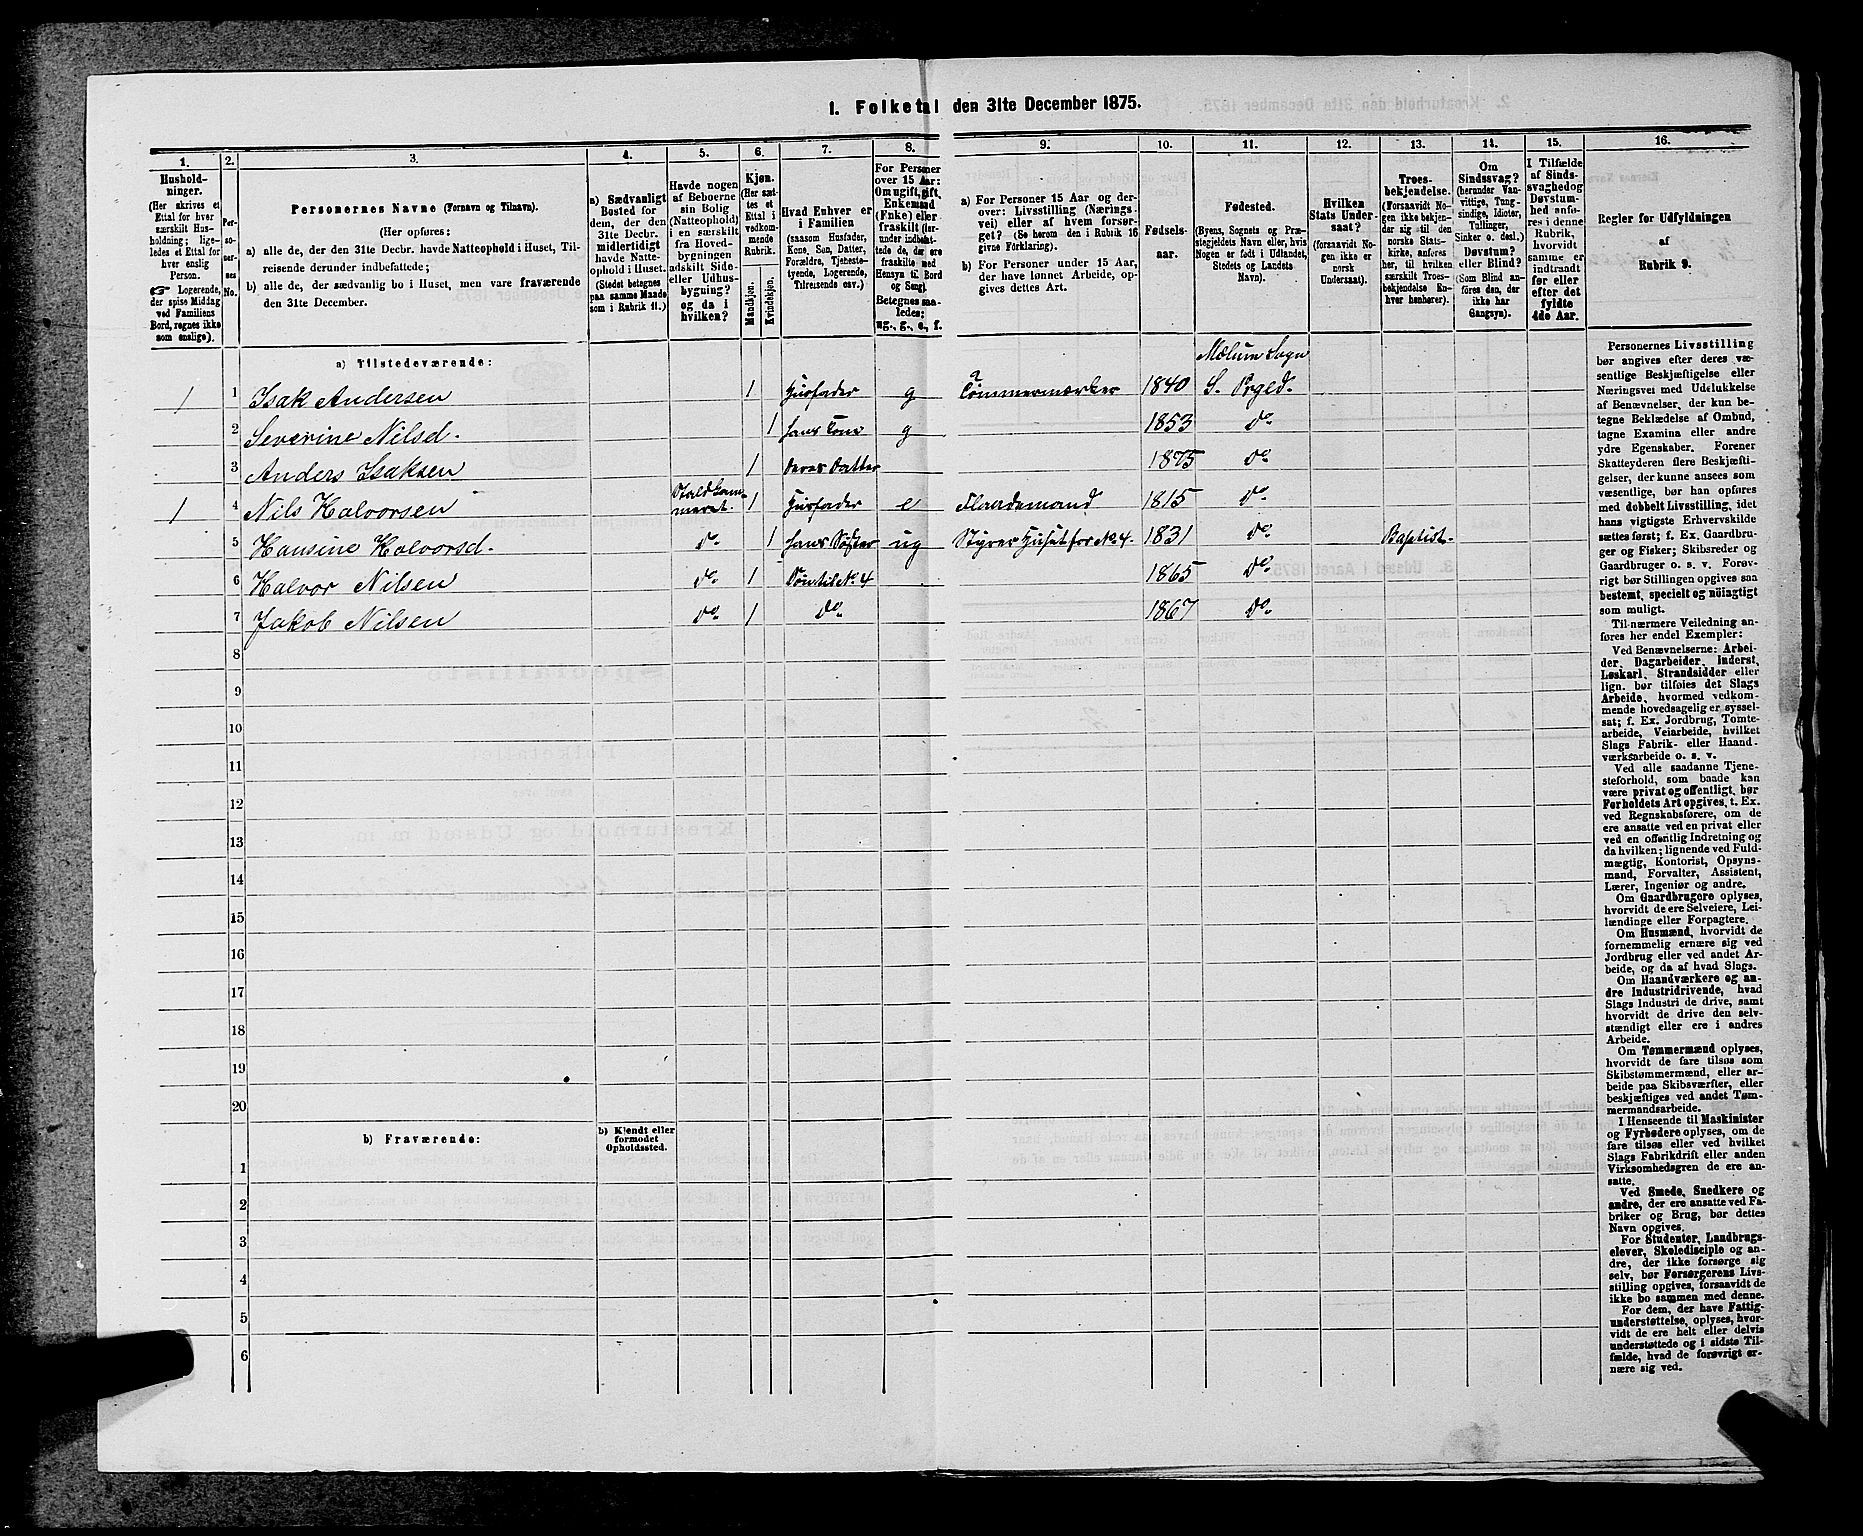 1. Folketal den 31te December 1875.
1.
2.
3.
4.
5.
6.
7.
8.
9.
10.
11.
12.
13.
14.
15.
16.
Hushold-
ninger.
(Her skrives et
Ettal for hver
særskilt Hus-
holdning; lige-
ledes et Ettal for
hver enslig
Person.
☞ Logerende,
der spise Middag
ved Familiens
Bord, regnes ikke
som enslige).
Per-
so-
ner-
nes
No.
Personernes Navne (Fornavn og Tilnavn).
(Her opføres:
a) alle de, der den 31te Decbr. havde Natteophold i Huset, Til-
reisende derunder indbefattede;
b) alle de, der sædvanlig bo i Huset, men vare fraværende
den 31te December.
a) Sædvanligt
Bosted for
dem, der den
31te Decbr.
midlertidigt
havde Natte-
ophold i Huset.
(Stedet betegnes
paa samme Maade
som i Rubrik 11.)
Havde nogen
af Beboerne
sin Bolig
(Natteophold)
i en særskilt
fra Hoved-
bygningen
adskilt Side-
eller Udhus-
bygning?
og da i
hvilken?
Kjøn.
(Her sæt-
tes et
Ettal i
vedkom-
mende
Rubrik.
Mandkjøn.
Kvindekjøn.
Hvad Enhver er
i Familien
(saasom Husfader,
Kone, Søn, Datter,
Forældre, Tjeneste-
tyende, Logerende,
Tilreisende osv.)
For Personer
over 15 Aar:
Om ugift, gift,
Enkemand
(Enke) eller
fraskilt (her-
under indbefat-
tede de, der ere
fraskilte med
Hensyn til Bord
og Seng).
Betegnes saa-
ledes:
ug., g., e., f.
a) For Personer 15 Aar og der-
over: Livsstilling (Nærings-
vei) eller af hvem forsør-
get? (Se herom den i Rubrik 16
givne Forklaring).
b) For Personer under 15 Aar,
der have lønnet Arbeide, op-
gives dettes Art.
Fødsels-
aar.
Fødested.
(Byens, Sognets og Præ-
stegjeldets Navn eller, hvis
Nogen er født i Udlandet,
Stedets og Landets
Navn).
Hvilken
Stats Under-
saat?
(forsaavidt No-
gen ikke er
norsk
Undersaat).
Troes-
bekjendelse.
(Forsaavidt No-
gen ikke bekjen-
der sig til den
norske Stats-
kirke, anføres
her, til hvilken
særskilt Troes-
bekjendelse En-
hver henhører).
Om
Sindssvag?
(herunder Van-
vittige, Tung-
sindige, Idioter,
Tullinger,
Sinker o. desl.)
Døvstum?
eller Blind?
(Som Blind an-
føres den, der
ikke har
Gangsyn).
I Tilfælde
af Sinds-
svaghed og
Døvstum-
hed anfø-
res i denne
Rubrik,
hvorvidt
samme er
indtraadt
før eller
efter det
fyldte
4de Aar.
Regler for Udfyldningen
af
Rubrik 9.
a) Tilstedeværende:
Mælum Sogn
1 1 Isak Andersen 1 Husfader g Tømmermærker 1840 S. Prgld.
2 Severine Nilsd. 1 hans Kone g 1853 do
3 Anders Isaksen 1 Deres Datter 1875 do
1 4 Nils Halvorsen Staldkam-
meret. 1 Husfader e Flaademand 1815 do
5 Hansine Halvorsd. do 1 hans Søster ug Styrer Huset for No. 4 1831 do Baptist.
6 Halvor Nilsen do 1 Søn til No. 4 1865 do
7 Jakob Nilsen do 1 do 1867 do
8
9
10
11
12
13
14
15
16
17
18
19
20
b) Fraværende:
b) Kjendt eller
formodet
Opholdssted.
1
2
3
4
5
6
Personernes Livsstilling
bør angives efter deres væ-
sentlige Beskjæftigelse eller
Næringsvei med Udelukkelse
af Benævnelser, der kun be-
tegne Beklædelse af Ombud,
tagne Examina eller andre
ydre Egenskaber. Forener
Skatteyderen flere Beskjæfti-
gelser, der kunne ansees som
væsentlige, bør han opføres
med dobbelt Livsstilling, idet
hans vigtigste Erhvervskilde
sættes først; f. Ex. Gaardbru-
ger og Fisker; Skibsreder og
Gaardbruger o. s. v. Forøv-
rigt bør Stillingen opgives saa
bestemt, specielt og nöiagtigt
som muligt.
Til nærmere Veiledning an-
føres her endel Exempler:
Ved Benævnelserne: Arbei-
der, Dagarbeider, Inderst,
Løskarl, Strandsidder eller
lign. bør tilføies det Slags
Arbeide, hvormed vedkom-
mende hovedsagelig er syssel-
sat; f. Ex. Jordbrug, Tomte-
arbeide, Veiarbeide, hvilket
Slags Fabrik- eller Haand-
værksarbeide o. s. v.
Ved alle saadanne Tjene-
steforhold, som baade kan
være privat og offentligt, bør
Forholdets Art opgives, t. Ex.
ved Regnskabsførere, om de
ere ansatte ved en privat eller
ved en offentlig Indretning og
da hvilken; lignende ved Fuld-
mægtig, Kontorist, Opsyns-
mand, Forvalter, Assistent,
Lærer, Ingeniør og andre.
Om Gaardbrugere oplyses,
hvorvidt de ere Selveiere, Lei-
lændinge eller Forpagtere.
Om Husmænd, hvorvidt de
fornemmelig ernære sig ved
Jordbrug eller ved andet Ar-
beide, og da af hvad Slags.
Om Haandværkere og an-
dre Industridrivende, hvad
Slags Industri de drive, samt
hvorvidt de drive den selv-
stændigt eller ere i andres
Arbeide.
Om Tømmermænd oplyses,
hvorvidt de fare tilsøs som
Skibstømmermænd, eller ar-
beide paa Skibsværfter, eller
beskjæftiges ved andet Tøm-
mermandsarbeide.
I Henseende til Maskinister
og Fyrbødere oplyses, om de
fare tilsøs eller ved hvilket
Slags Fabrikdrift eller anden
Virksomhedsgren de ere an-
satte.
Ved Smede, Snedkere og
andre, der ere ansatte ved Fa-
briker og Brug, bør dettes
Navn opgives.
For Studenter, Landbrugs-
elever, Skoledisciple og an-
dre, der ikke forsørge sig
selv, bør Forsørgerens Livs-
stilling opgives, forsaavidt de
ikke bo sammen med denne.
For dem, der have Fattig-
understøttelse, oplyses, hvor-
vidt de ere helt eller delvis
understøttede og i sidste Til-
fælde, hvad de forøvrigt er-
nære sig ved.